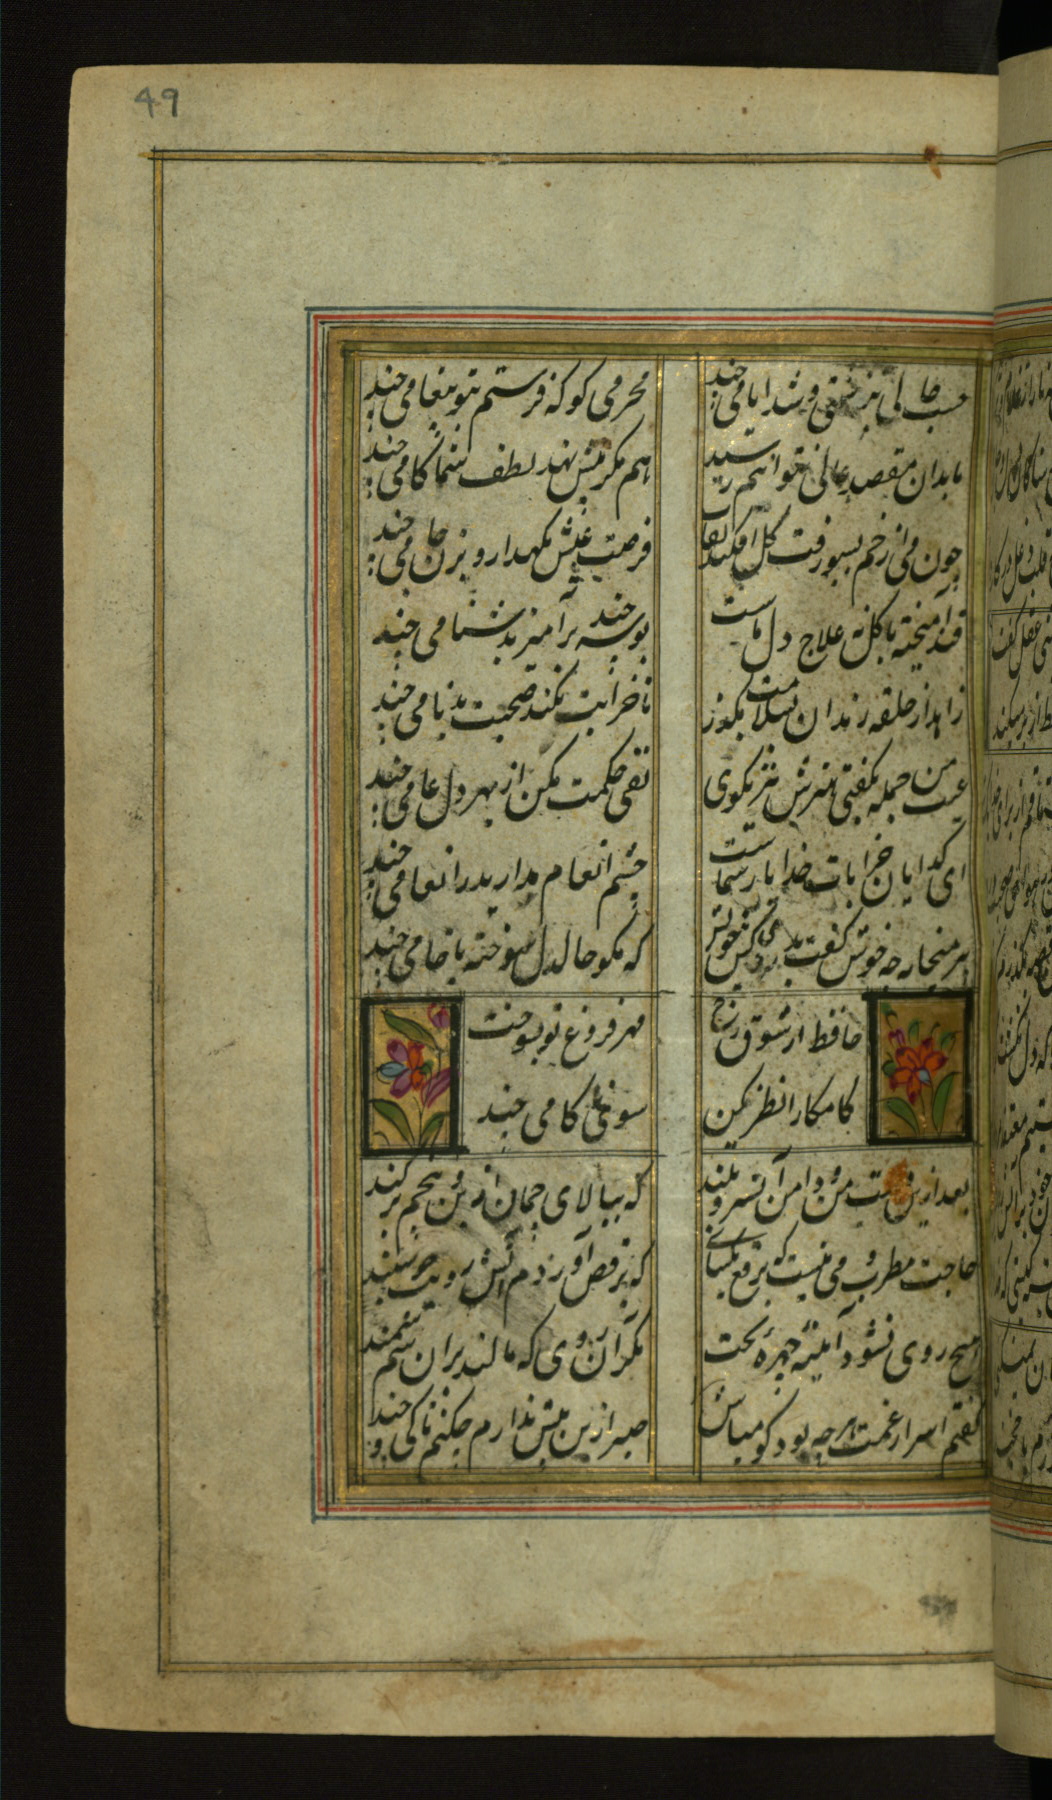 49
حسب حالی ننوشتی و شد ایامی چند
محرمی کو که فرستم بتو پیغامی چند
ما بدان مقصد عالی نتوانیم رسید
هم مکر پیش نهد لطف شما کامی چند
چون می از خم بسبو رفت کل افکند نقاب
فرصت عیش نکهدار و بزن جامی چند
قند آمیخته با کل نه علاج دل ماست
بوسه چند برآمیز بدشنامی چند
زاهد از حلقه رندان بسلامت بکذر
تا خرابت نکند صحبت بدنامی چند
عیب من جمله بکفتی هنرش نیز بکوی
نفی حکمت مکن از بهر دل عامی چند
ای کدایان خرابات خدا یار شماست
چشم انعام مدارید ز انعامی چند
پیر میخانه چه خوش کفت بدردی کش خویش
که مکو حال دل سوخته با خامی چند
حافظ از شوق رخ
مهر فروغ تو بسوخت
کامکارا نظری کن
سوی ناکامی چند
بعد ازین دست من و دامن آن سرو بلند
که ببالای چمان از بن و بیخم برکند
حاجت مطرب و می نیست تو برقع بکشای
که برقص آوردم آتش رویت چو سپند
هیچ روی نشود آینه چهره بخت
مکر آن روی که مالند بران سم سمند
کفتم اسرار غمت هر چه بود کو میباش
صبر ازین بیش ندارم چکنم تا کی و چند